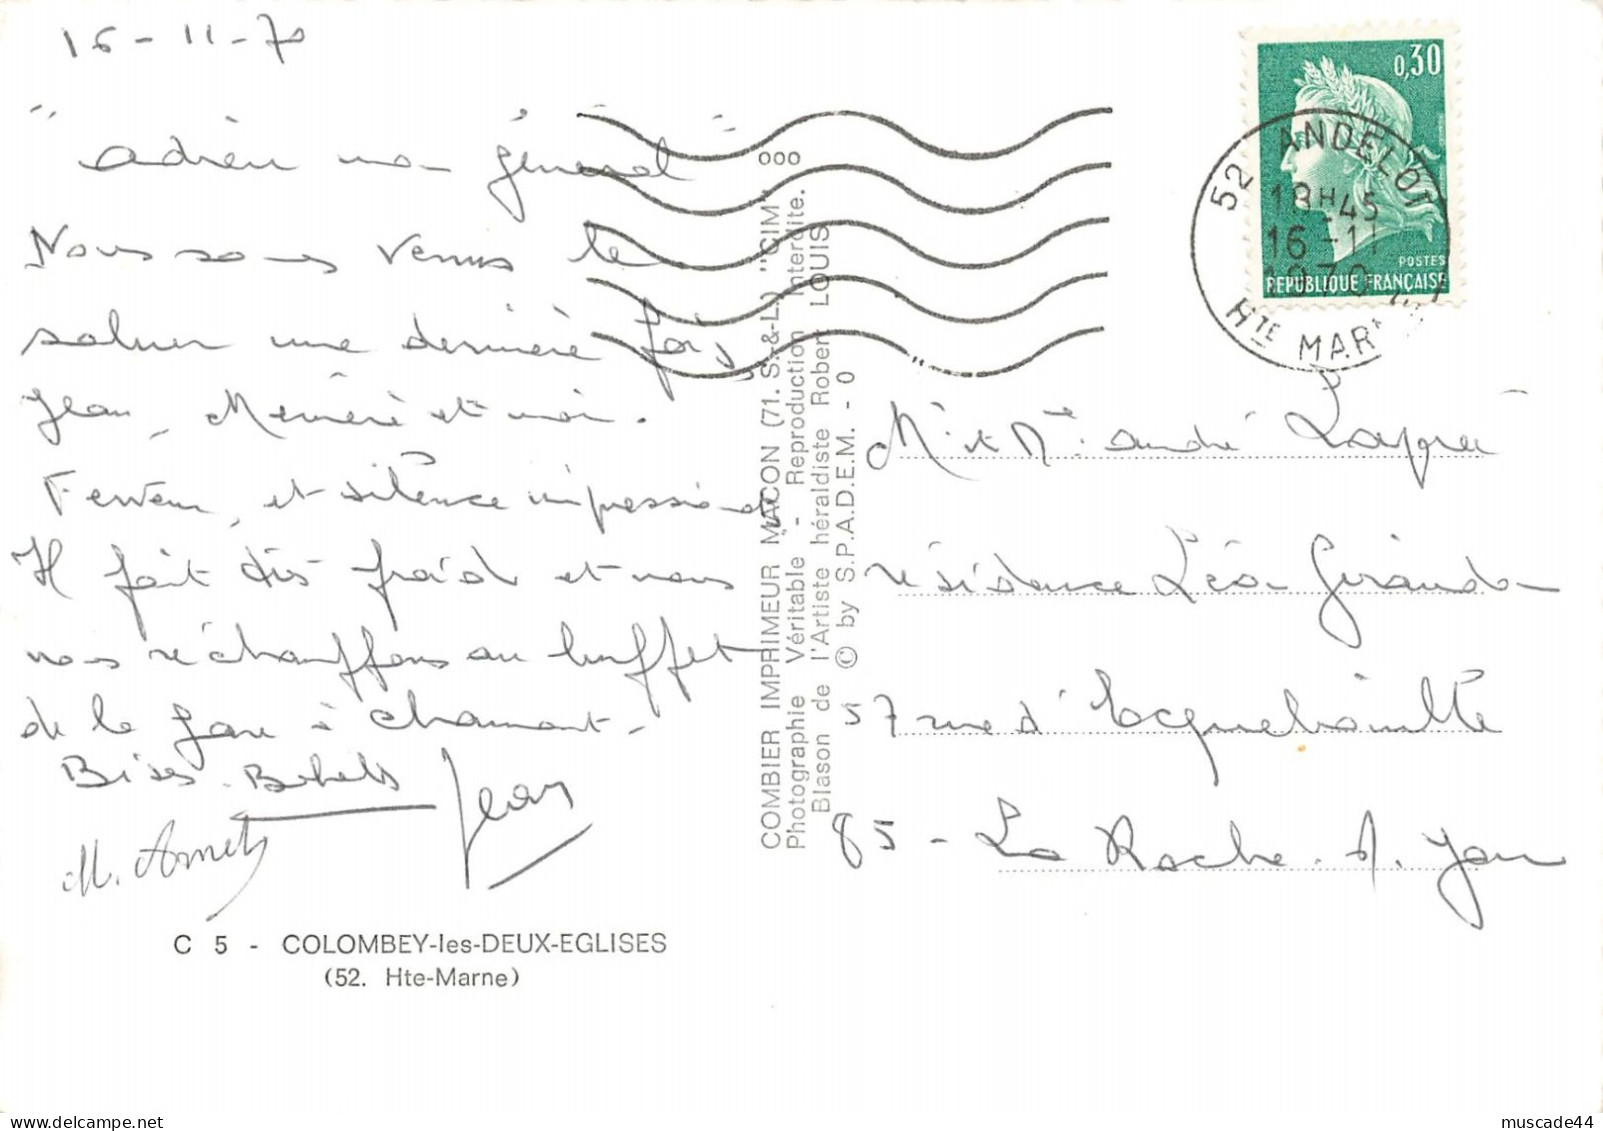 16-11-70
"adieu mon général"
Nous sommes venus le
saluer une dernière fois
Jean, et moi.
Ferveur, et silence impressionnant
Il fait très froid et nous
nous réchauffons au buffet
de la gare à chaumont-
Bises.
Jean
C 5 - COLOMBEY-les-DEUX-EGLISES
(52. Hte-Marne)
COMBIER IMPRIMEUR MACON (71. S.-&-L.) "CIM"
Photographie Véritable - Reproduction Interdite.
Blason de l'Artiste héraldiste Robert LOUIS
© by S.P.A.D.E.M. - 0
0,30
POSTES
REPUBLIQUE FRANÇAISE
52 ANDELOT
18H45
16-11
1970
HTE MARNE
Mr et Me andré
résidence Léo
57 rue d'Ecquebouille
85 - La Roche. s. Yon
muscade44